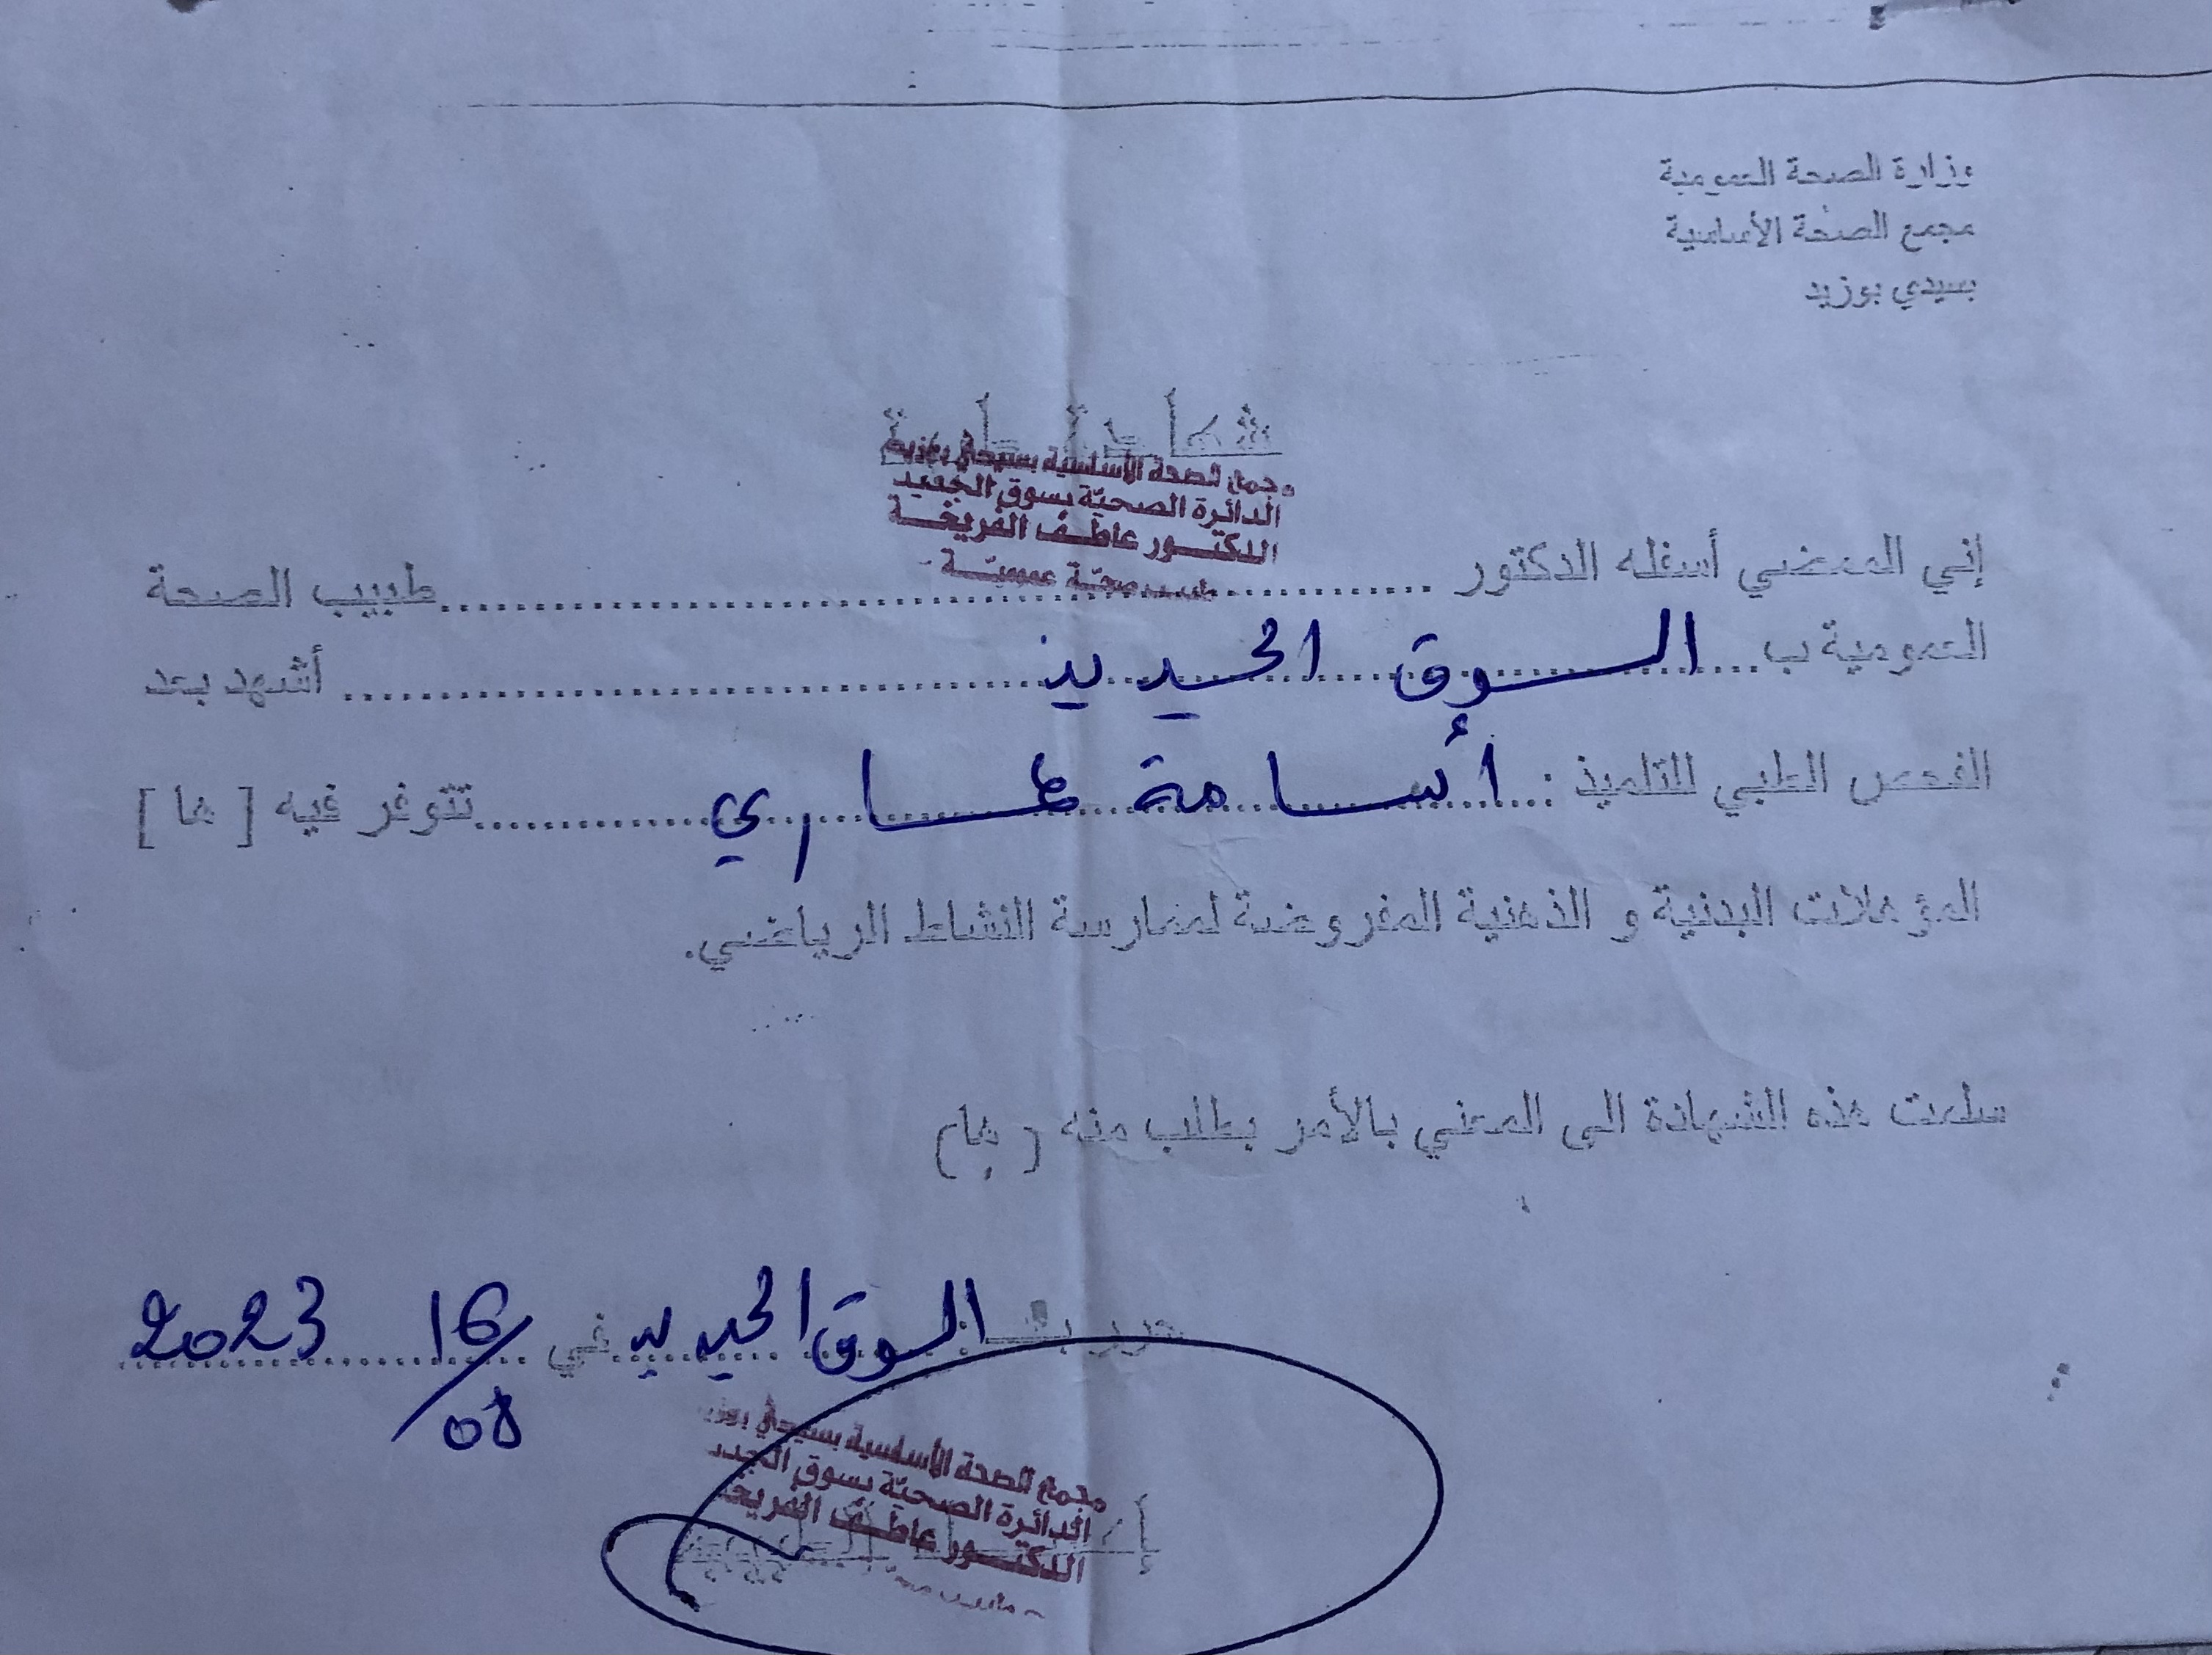 وزارة الصحة العمومية
مجمع الصحة الأساسية
بسيدي بوزيد
شهادة طبية
مجمع الصحة الأساسية بسيدي بوزيد
الدائرة الصحيّة بسوق الجديد
الدكتور عاطف الفريخة
طبيب صحّة عموميّة
إني الممضي أسفله الدكتور ........ طبيب الصحة
العمومية ب... السوق الجديد ........ أشهد بعد
الفحص الطبي للتلميذ : أسامة ........ تتوفر فيه [ ها ]
المؤهلات البدنية و الذهنية المفروضة لممارسة النشاط الرياضي.
سلمت هذه الشهادة الى المعني بالأمر بطلب منه ( ها)
حرر بـ السوق الجديد في 16/08 2023
مجمع الصحة الأساسية بسيدي بوزيد
الدائرة الصحيّة بسوق الجديد
الدكتور عاطف الفريخة